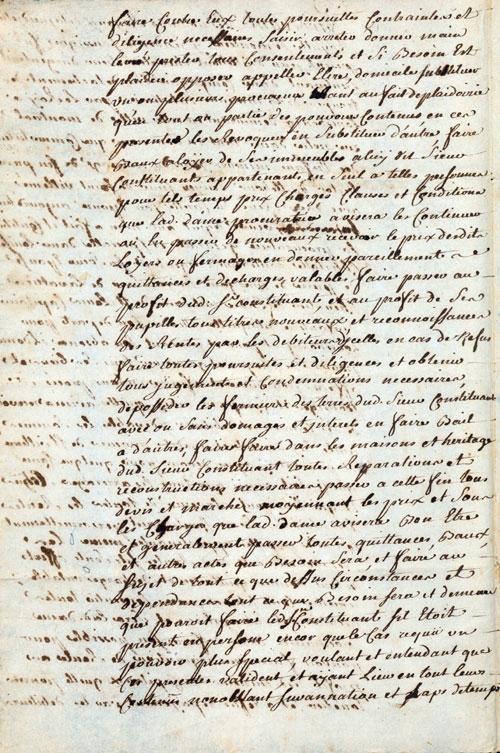 faire Contre Eux toutes poursuittes Contraintes et
diligence necessaires Saisir arreter donner main
levée prester tous Consentements et Si Besoin Est
plaider opposer appeller Elire domicile substituer
un ou plusieurs procureurs tant au fait de plaidoirie
que tout ou partie des pouvoirs Contenus en ces
presentes les Revoquer en Substituer d'autre faire
Baux a loyer de Ses immeubles a luy dit Sieur
Constituants appartenants en Seul a telles personnes
pour tels temps prix Charges Clauses et Conditions
que lad. dame procuratrice avisera les Continuer
ou en passer de nouveaux recevoir le prix desdits
Loyers ou fermages en donner pareillement
quittances et decharges valables faire passer au
profit dud. Sr. constituant et au profit de Ses
pupilles tous titres nouveaux et reconnoissances
des Rentes par les debiteurs d'ycelles en cas de Refus
faire toutes poursuites et diligences et obtenir
tous jugements et Condemnations necessaires
deposseder les fermiers des terres dud. Sieur Constituant
avec ou Sans domages et interets en faire Bail
a d'autres, faire faire dans les maisons et heritages
dud. Sieur Constituant toutes Reparations et
reconstructions necessaires passer a cette fin tous
devis et marchés moyennant les prix et Sous
les Charges que lad. dame avisera Bon Etre
et generalement passer toutes quittances Baux
et autres actes que Besoin Sera, et faire au
Sujet de tout ce que dessus Circonstances et
dependances tout ce que Besoin Sera et de meme
que pouroit faire led. Sr. Constituant s'il Etoit
present en personne encor que le Cas requit un
pouvoir plus special, voulant et entendant que
Ces presentes valident, et ayant Lieu en tout leurs
Contenu nonobstant Surannation et Laps de temps